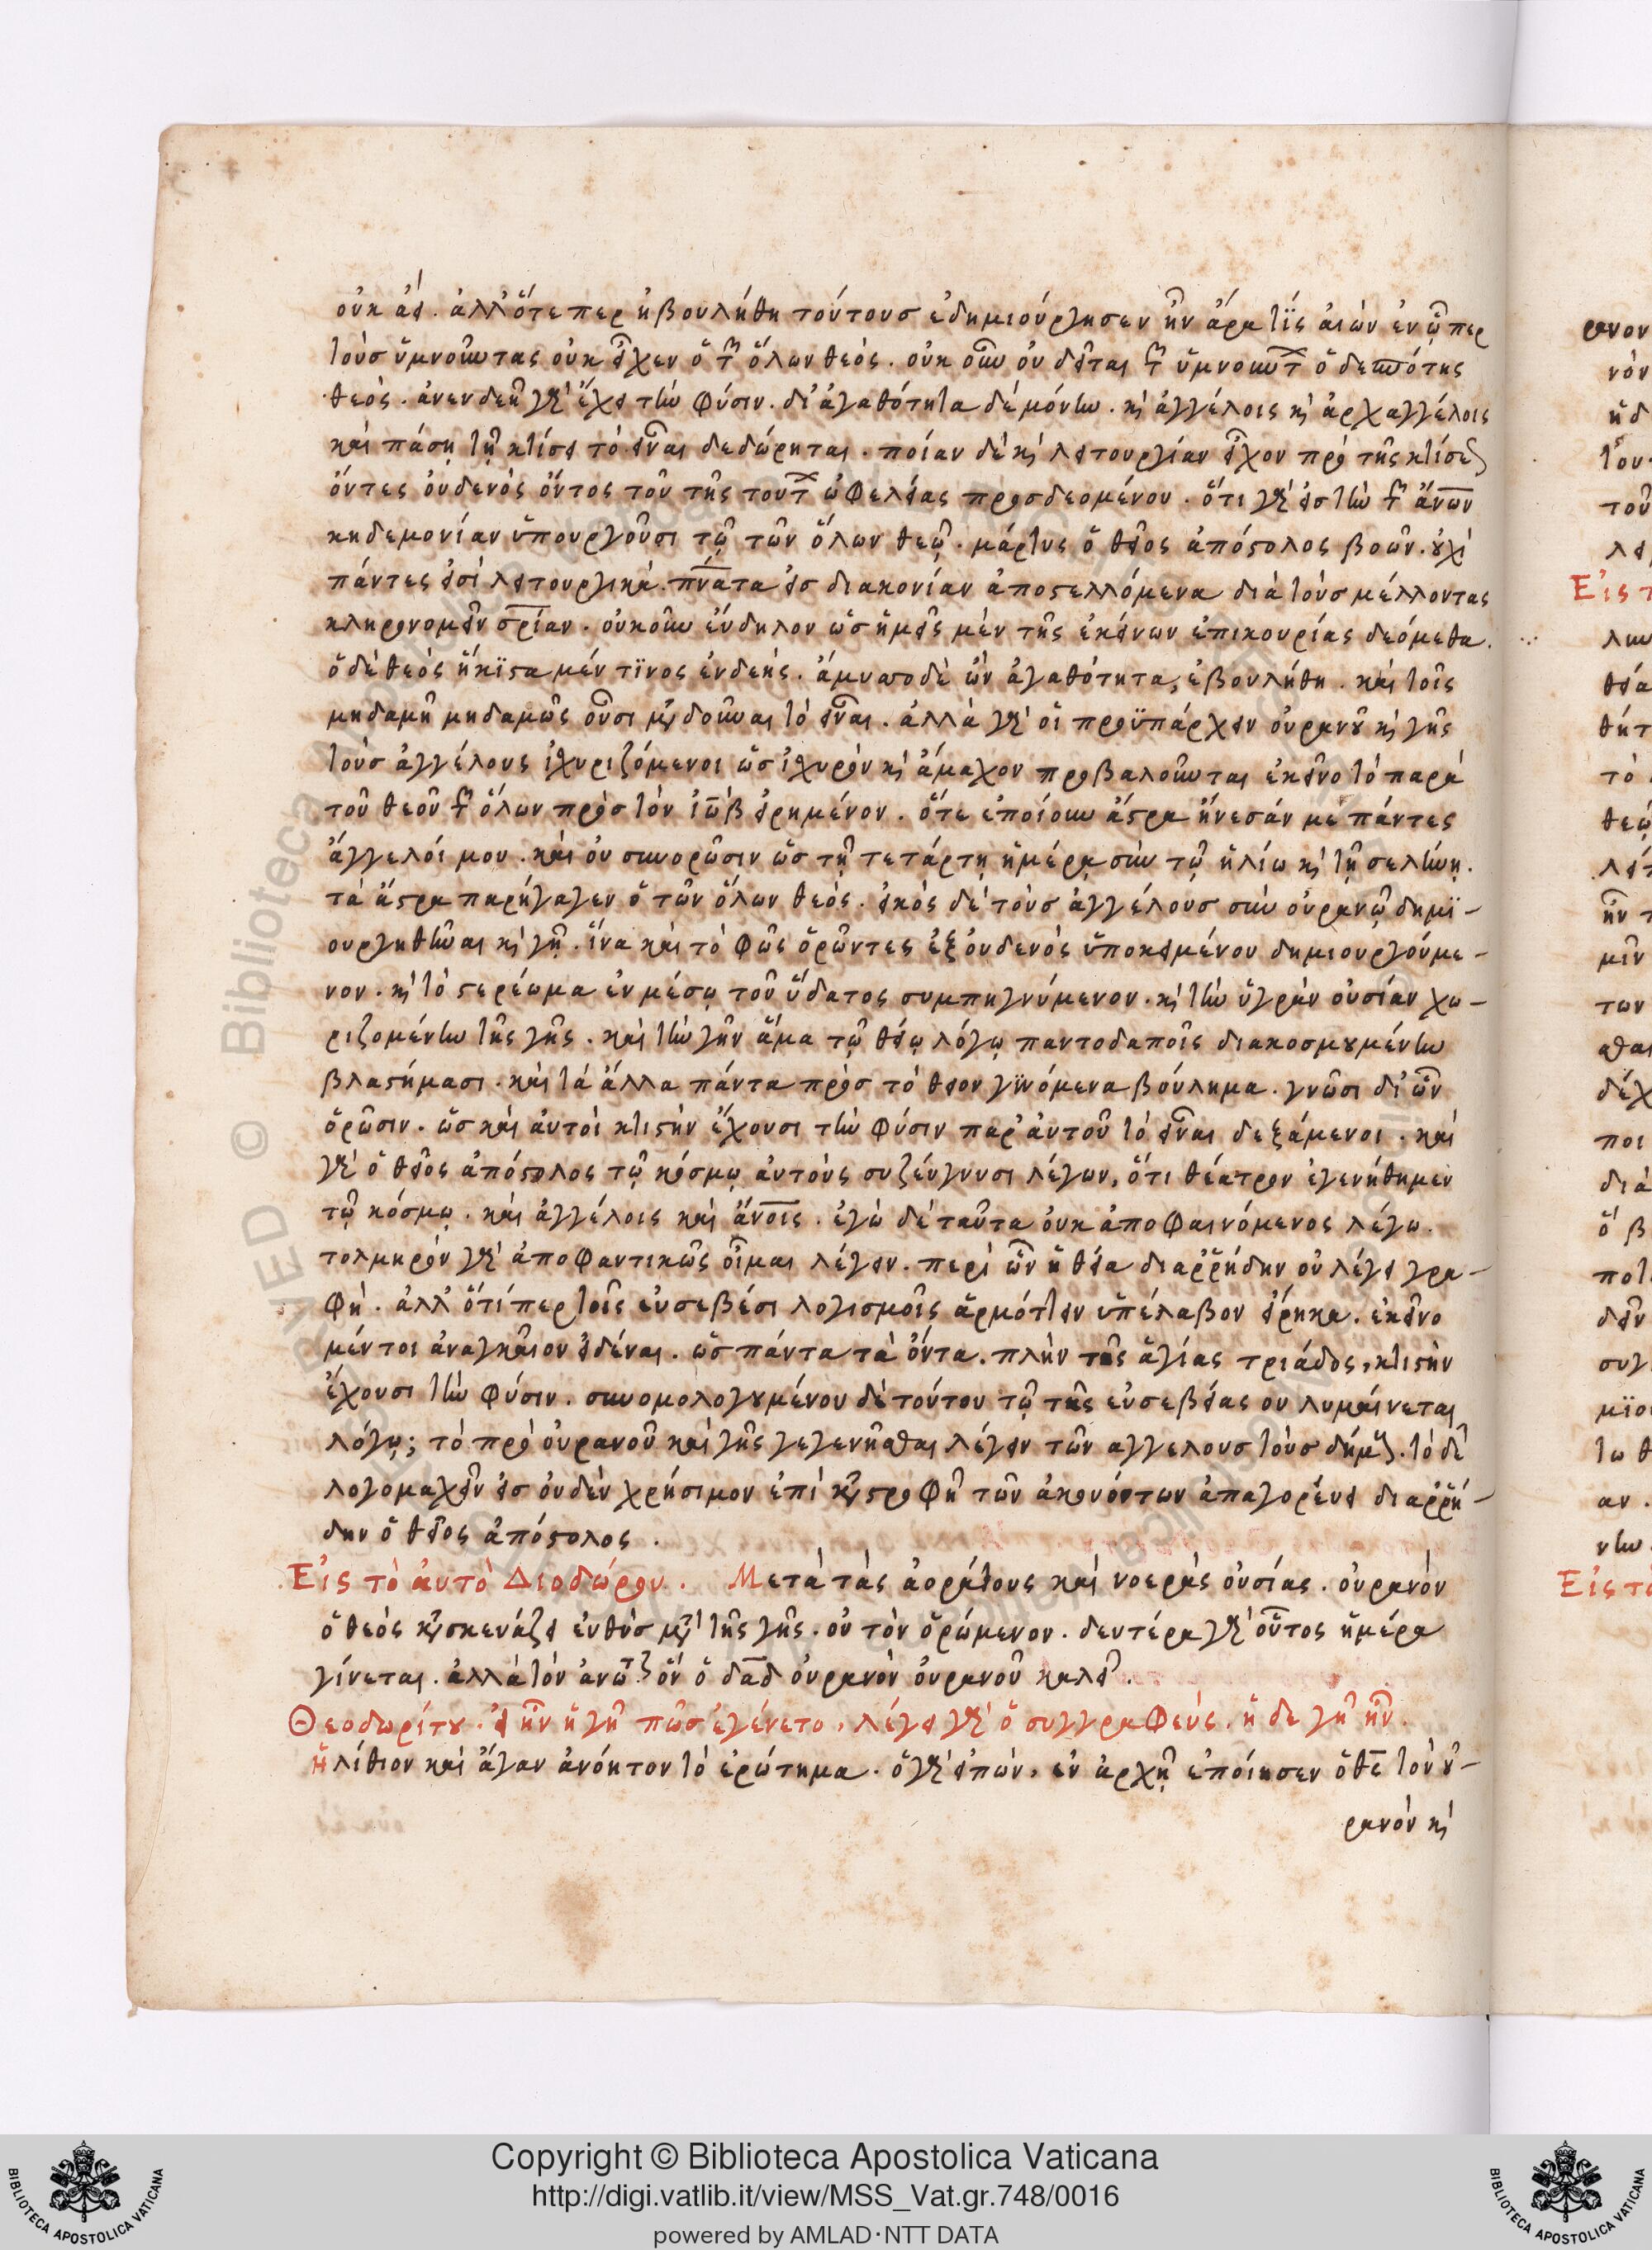 οὐκ ἀεί. ἀλλ' ὅτε περ ἠβουλήθη τούτους ἐδημιούργησεν ἦν ἄρα τίς αἰὼν ἐν ᾧπερ
τοὺς ὑμνοῦντας οὐκ εἶχεν ὁ τῶν ὅλων θεός. οὐκοῦν οὐ δεῖται τῶν ὑμνούντων ὁ δεσπότης
θεός. ἀνενδεῆ γὰρ ἔχει τὴν φύσιν. δι' ἀγαθότητα δὲ μόνην. κὶ ἀγγέλοις κὶ ἀρχαγγέλοις
καὶ πάσῃ τῇ κτίσει τὸ εἶναι δεδώρηται. ποίαν δὲ κὶ λειτουργίαν εἶχον πρὸ τῆς κτίσεως
ὄντες οὐδενὸς ὄντος τοῦ τῆς τούτων ὠφελείας προσδεομένου. ὅτι γὰρ εἰς τὴν τῶν ἀνων
κηδεμονίαν ὑπουργοῦσι τῷ τῶν ὅλων θεῷ. μάρτυς ὁ θεῖος ἀπόστολος βοῶν. οὐχὶ
πάντες εἰσὶ λειτουργικὰ. πνάτα εἰς διακονίαν ἀποστελλόμενα διὰ τοὺς μέλλοντας
κληρονομεῖν σρίαν. οὐκοῦν εὔδηλον ὡς ἡμεῖς μὲν τῆς ἐκείνων ἐπικουρίας δεόμεθα.
ὁ δὲ θεὸς ἥκϊστα μέν τϊνος ἐνδεής. ἄμυστο δὲ ὢν ἀγαθότητα, ἐβουλήθη. καὶ τοῖς
μηδαμῆ μηδαμῶς οὖσι μεταδοῦναι τὸ εἶναι. ἀλλὰ γὰρ οἱ προϋπάρχειν οὐρανοῦ κὶ γῆς
τοὺς ἀγγέλους ἰσχυριζόμενοι ὡς ἰσχυρὸν κὶ ἄμαχον προβαλοῦνται ἐκεῖνο τὸ παρὰ
τοῦ θεοῦ τῶν ὅλων πρὸς τὸν ἰὼβ εἰρημένον. ὅτε ἐποίουν ἄστρα ἤνεσάν με πάντες
ἄγγελοί μου. καὶ οὐ συνορῶσιν ὡς τῇ τετάρτῃ ἡμέρᾳ σὺν τῷ ἡλίω κὶ τῇ σελήνῃ.
τὰ ἄστρα παρήγαγεν ὁ τῶν ὅλων θεός. εἰκὸς δὲ τοὺς ἀγγέλους σὺν οὐρανῷ δημϊ-
ουργηθῆναι κὶ γῇ. ἵνα καὶ τὸ φῶς ὁρῶντες ἐξ οὐδενὸς ὑποκειμένου δημιουργούμε-
νον. κὶ τὸ στερέωμα ἐν μέσῳ τοῦ ὕδατος συμπηγνύμενον. κὶ τὴν ὑγρὰν οὐσίαν χω-
ριζομένην τῆς γῆς. καὶ τὴν γῆν ἅμα τῷ θείῳ λόγῳ παντοδαποῖς διακοσμουμένην
βλαστήμασι. καὶ τὰ ἄλλα πάντα πρὸς τὸ θεῖον γϊνόμενα βούλημα. γνῶσι δι' ὧν
ὁρῶσιν. ὡς καὶ αὐτοὶ κτιστὴν ἔχουσι τὴν φύσιν παρ' αὐτοῦ τὸ εἶναι δεξάμενοι. καὶ
γὰρ ὁ θεῖος ἀπόστολος τῷ κόσμῳ αὐτοὺς συζεύγνυσι λέγων, ὅτι θέατρον ἐγενήθημεν
τῷ κόσμῳ. καὶ ἀγγέλοις καὶ ἄνοις. ἐγὼ δὲ ταῦτα οὐκ ἀποφαινόμενος λέγω.
τολμηρὸν γὰρ ἀποφαντικῶς οἶμαι λέγειν. περὶ ὧν ἡ θεία διαῤῥήδην οὐ λέγει γρα-
φή. ἀλλ' ὅτίπερ τοῖς εὐσεβέσι λογισμοῖς ἁρμόττειν ὑπέλαβον εἴρηκα. ἐκεῖνο
μέντοι ἀναγκαῖον εἰδέναι. ὡς πάντα τὰ ὄντα. πλὴν τῆς ἁγίας τριάδος, κτιστὴν
ἔχουσι τὴν φύσιν. συνομολογουμένου δὲ τούτου τῷ τῆς εὐσεβείας οὐ λυμαίνεται
λόγῳ; τὸ πρὸ οὐρανοῦ καὶ γῆς γεγενῆσθαι λέγειν τῶν αγγελους τοὺς δήμους. τὸ δὲ
λογομαχεῖν εἰς οὐδὲν χρήσιμον ἐπὶ καταστροφῇ τῶν ἀκουόντων ἀπαγορεύει διαῤῥή-
δην ὁ θεῖος ἀπόστολος.
Εἰς τὸ αὐτὸ Διοδώρου. Μετὰ τὰς ἀοράτους καὶ νοερὰς οὐσίας. οὐρανὸν
ὁ θεὸς κατασκευάζει εὐθὺς μετὰ τῆς γῆς. οὐ τὸν ὁρώμενον. δευτέρα γὰρ οὗτος ἡμέρα
γίνεται. ἀλλὰ τὸν ἀνωτ. ὃν ὁ δαδ οὐρανὸν οὐρανοῦ καλεῖ.
Θεοδωρίτου. εἰ ἦν ἡ γῆ πῶς ἐγένετο, λέγει γὰρ ὁ συγγραφεύς. ἡ δε γῆ ἦν.
ἠλίθιον καὶ ἄγαν ἀνόητον τὸ ἐρώτημα. ὁ γὰρ εἰπών, ἐν ἀρχῇ ἐποίησεν ὁ θε τὸν οὐ-
ρανὸν κὶ
Copyright © Biblioteca Apostolica Vaticana
http://digi.vatlib.it/view/MSS_Vat.gr.748/0016
powered by AMLAD·NTT DATA